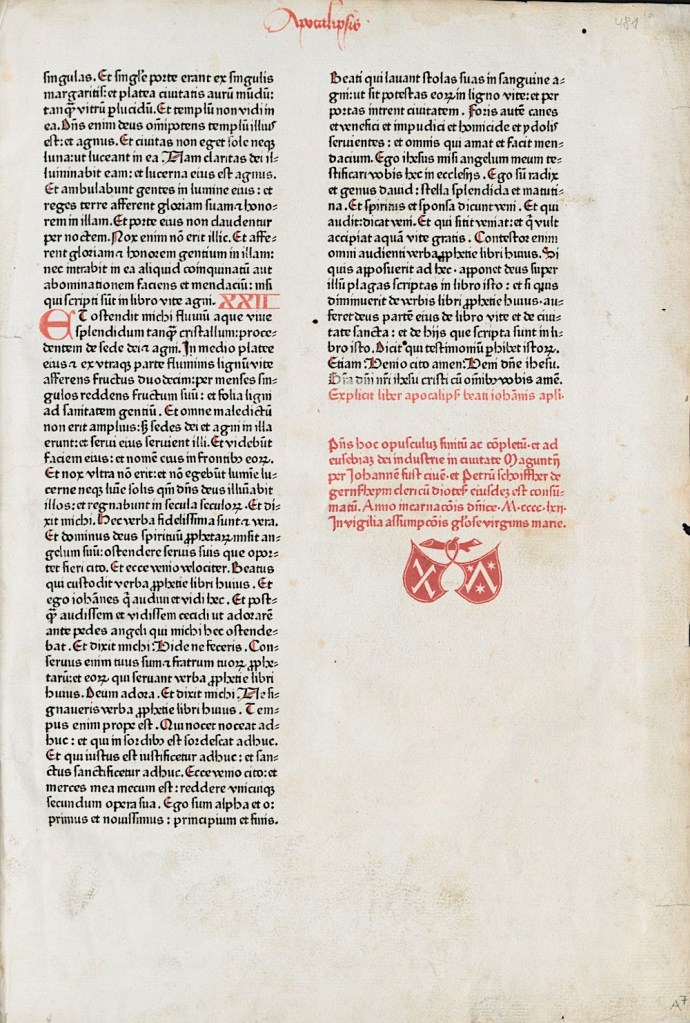 Apocalipsis
481
singulas. Et singl'e porte erant ex singulis
margaritis: et platea civitatis aurū mūdū:
tanqƺ vitrū ꝑlucidū. Et templū non vidi in
ea. Dn̄s enim deus om̄ipotens templū illius
est: et agnus. Et civitas non eget sole neqƺ
luna: ut luceant in ea. Nam claritas dei il⸗
luminabit eam: et lucerna eius est agnus.
Et ambulabunt gentes in lumine eius: et
reges terre afferent gloriam suam ⁊ hono⸗
rem in illam. Et porte eius non claudentur
per noctem. Nox enim nō erit illic. Et affe⸗
rent gloriam ⁊ honorem gentium in illam:
nec intrabit in ea aliquid coinquinatū aut
abominationem faciens et mendaciū: nisi
qui scripti sūt in libro vite agni. XXII
ET ostendit michi fluviū aque vive
splendidum tanqƺ cristallum: proce⸗
dentem de sede dei ⁊ agni. In medio platee
eius ⁊ ex utraqƺ parte fluminis lignū vite
afferens fructus duodecim: per menses sin⸗
gulos reddens fructum suū: et folia ligni
ad sanitatem gentiū. Et omne maledictū
non erit amplius: sƺ sedes dei et agni in illa
erunt: et servi eius servient illi. Et videbūt
faciem eius: et nomē eius in frontibƺ eoꝝ.
Et nox ultra nō erit: et nō egebūt lumīe lu⸗
cerne neqƺ lumīe solis qm̄ dn̄s deus illuīabit
illos: et regnabunt in secula seculoꝝ. Et di⸗
xit michi. Hec verba fidelissima sunt ⁊ vera.
Et dominus deus spirituū ꝓphetaꝝ misit an⸗
gelum suū: ostendere servis suis que opor⸗
tet fieri cito. Et ecce venio velociter. Beatus
qui custodit verba ꝓphetie libri huius. Et
ego iohānes q̄ audivi et vidi hec. Et post⸗
qƺ audissem et vidissem cecidi ut adorarē
ante pedes angeli qui michi hec ostende⸗
bat. Et dixit michi. Vide ne feceris. Con⸗
servus enim tuus sum ⁊ fratrum tuoꝝ ꝓphe⸗
tarū: et eoꝝ qui servant verba ꝓphetie libri
huius. Deum adora. Et dixit michi. Ne si⸗
gnaveris verba ꝓphetie libri huius. Tem⸗
pus enim prope est. Qui nocet noceat ad⸗
huc: et qui in sordibƺ est sordescat adhuc.
Et qui iustus est iustificetur adhuc: et san⸗
ctus sanctificetur adhuc. Ecce venio cito: et
merces mea mecum est: reddere unicuiqƺ
secundum opera sua. Ego sum alpha et o:
primus et novissimus: principium et finis.
Beati qui lavant stolas suas in sanguine a⸗
gni: ut sit potestas eoꝝ in ligno vite: et per
portas intrent civitatem. Foris autē canes
et venefici et impudici et homicide et ydolis
servientes: et omnis qui amat et facit men⸗
dacium. Ego ihesus misi angelum meum te⸗
stificari vobis hec in ecclesiis. Ego sū radix
et genus david: stella splendida et matuti⸗
na. Et spiritus et sponsa dicunt veni. Et qui
audit: dicat veni. Et qui sitit veniat: et q̄ vult
accipiat aquā vite gratis. Contestor enim
omni audienti verba ꝓphetie libri huius. Si
quis apposuerit ad hec. apponet deus super
illū plagas scriptas in libro isto: et si quis
diminuerit de verbis libri ꝓphetie huius. au⸗
feret deus partē eius de libro vite et de civi⸗
tate sancta: et de hijs que scripta sunt in li⸗
bro isto. Dicit qui testimoniū ꝑhibet istoꝝ.
Etiam: Venio cito amen: Veni dn̄e ihesu.
Gr̄a dn̄i nr̄i ihesu cristi cū om̄ibƺ vobis amē.
Explicit liber apocalips' beati iohānis apl'i.
Pn̄s hoc opusculuƺ finitū ac cōpletū. et ad
eusebiaƺ dei industrie in civitate Maguntij
per Johannē fust civē. et Petrū schoiffher de
gernsheym clericū diotec' eiusdeƺ est consū⸗
matū. Anno incarnacōis dn̄ice. M.cccc.lxii.
In vigilia assumpcōis gl'ose virginis marie.
A7